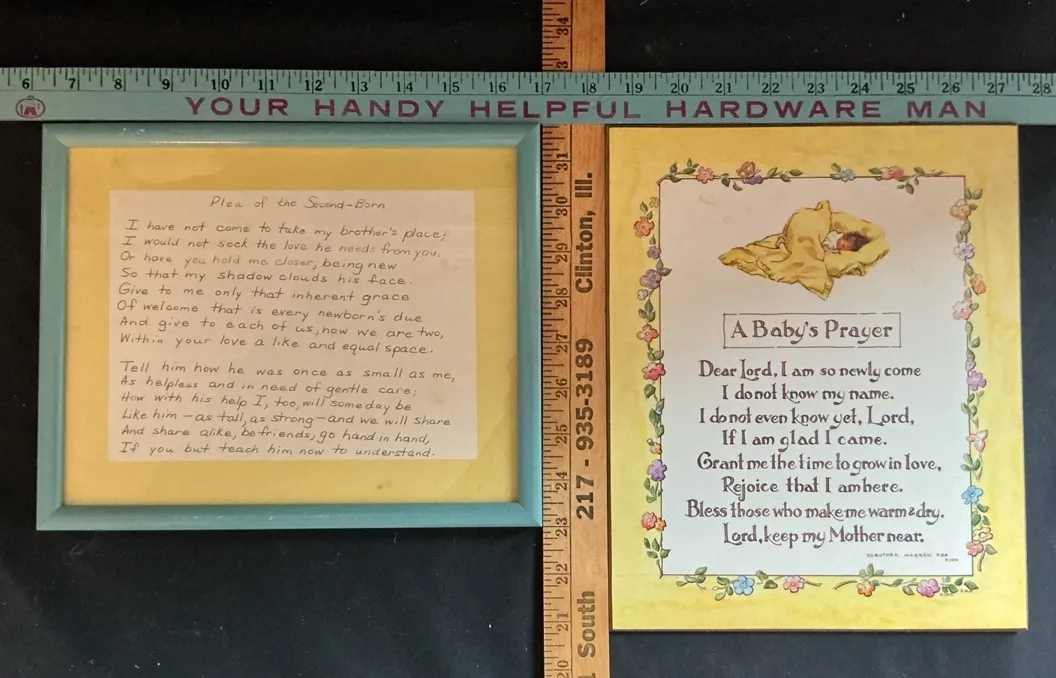 34
6 7 8 9 10 11 12 13 14 15 16 17 18 19 20 21 22 23 24 25 26 27 28
YOUR HANDY HELPFUL HARDWARE MAN
Plea of the Second-Born
I have not come to take my brother's place;
I would not seek the love he needs from you,
Or have you hold me closer, being new
So that my shadow clouds his face.
Give to me only that inherent grace
Of welcome that is every newborn's due
And give to each of us, now we are two,
Within your love a like and equal space.
Tell him how he was once as small as me,
As helpless and in need of gentle care;
How with his help I, too, will someday be
Like him — as tall, as strong — and we will share
And share alike, be friends, go hand in hand,
If you but teach him now to understand.
31 30 29 28 27 26 25 24 23 22 21 20
South 217 - 935-3189 Clinton, Ill.
A Baby's Prayer
Dear Lord, I am so newly come
I do not know my name.
I do not even know yet, Lord,
If I am glad I came.
Grant me the time to grow in love,
Rejoice that I am here.
Bless those who make me warm & dry.
Lord, keep my Mother near.
DOROTHEA WARREN FOX